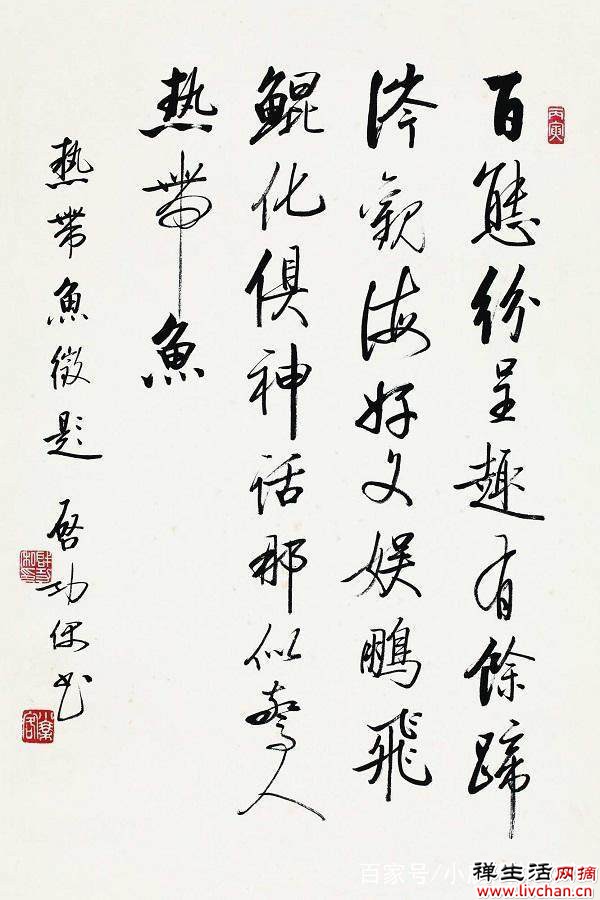 丙寅
百態紛呈趣有餘蹄
涔觀海好文娛鵬飛
鯤化俱神話那似驚人
熱帶魚
熱帶魚徵題 啓功偶書
百家号/小
禅生活网摘
www.livchan.cn